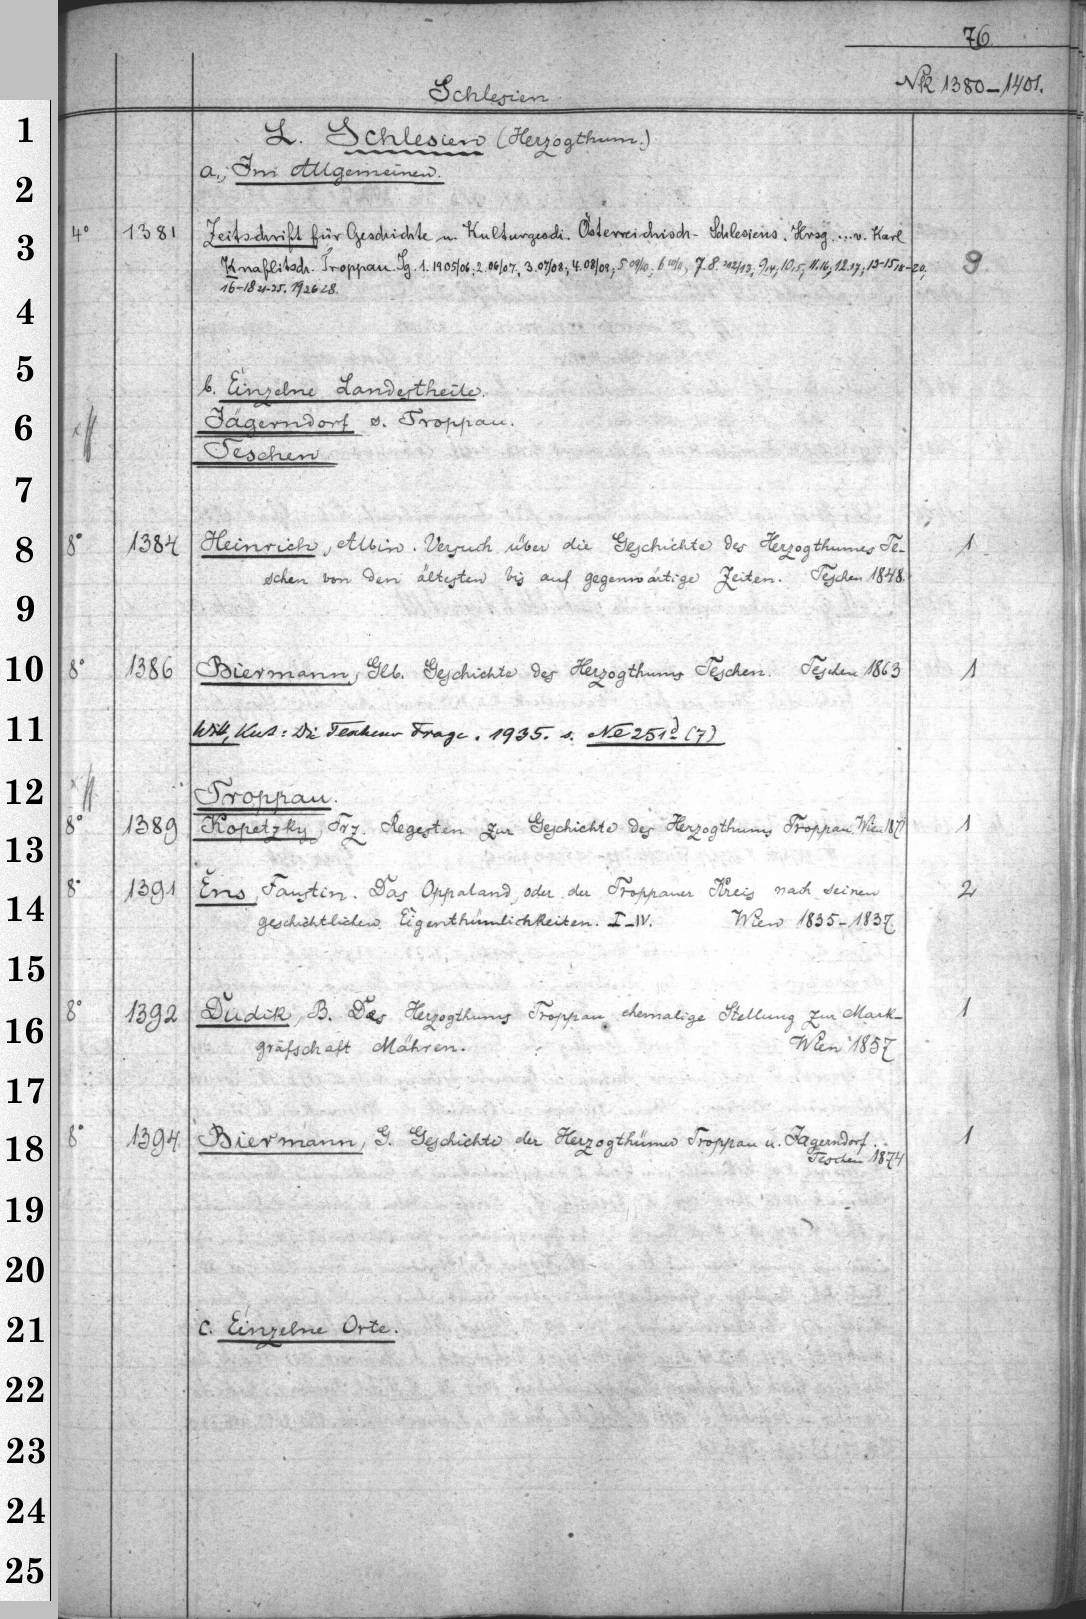 76
Schlesien Nr. 1380-1401.
L. Schlesien (Herzogthum.)
a., Im Allgemeinen.
4° 1381 Zeitschrift für Geschichte u. Kulturgesch. Österreichisch-Schlesiens. Hrsg. ... v. Karl
Knaflitsch. Troppau. Jg. 1. 1905/06; 2. 06/07, 3. 07/08; 4. 08/09; 5 09/10; 6 10/11; 7. 8. 12/13; 9 14; 10 15; 11. 16; 12. 17; 13-15 18-20; 9.
16-18 21-25. 1926 28.
b. Einzelne Landestheile.
Jägerndorf s. Troppau.
Teschen
8° 1384 Heinrich, Albin. Versuch über die Geschichte des Herzogthumes Te- 1
schen von den ältesten bis auf gegenwärtige Zeiten. Teschen 1848.
8° 1386 Biermann, Glb. Geschichte des Herzogthums Teschen. Teschen 1863 1
Witt, Kurt: Die Teschener Frage. 1935. s. Nr 251d (7)
Troppau.
8° 1389 Kopetzky, Frz. Regesten zur Geschichte des Herzogthums Troppau. Wien 1871 1
8° 1391 Ens, Faustin. Das Oppaland, oder der Troppauer Kreis nach seinen 2
geschichtlichen Eigenthümlichkeiten. I-IV. Wien 1835-1837
8° 1392 Dudik, B. Des Herzogthums Troppau ehemalige Stellung zur Mark- 1
grafschaft Mähren. Wien 1857
8° 1394 Biermann, G. Geschichte der Herzogthümer Troppau u. Jägerndorf. 1
Teschen 1874
c. Einzelne Orte.
1
2
3
4
5
6
7
8
9
10
11
12
13
14
15
16
17
18
19
20
21
22
23
24
25